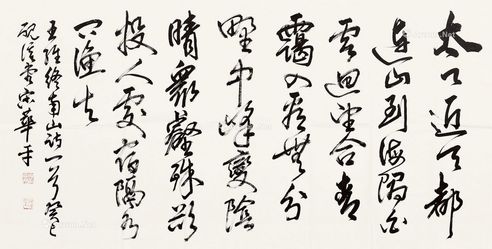 太乙近天都
連山到海隅白
雲迴望合青
靄入看無分
野中峰變陰
晴眾壑殊欲
投人處宿隔水
問漁夫
王維終南山詩一首癸巳
堂宋華平